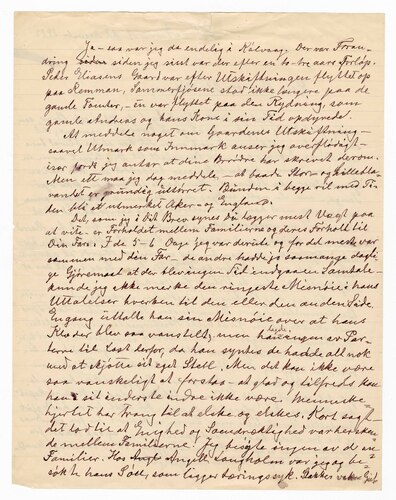 Ja – saa var jeg da endelig i Kålvaag. Der var Foran-
dring siden jeg sist var der efter en to-tre aars forløp.
Peder Eliesens Gaard var efter Utskiftningen flyttet op
paa Remman, Sammerfjøsene stod ikke længere paa de
gamle Tomter, – en var flyttet paa den Rydning, som
gamle Andreas og hans Kone i sin Tid opdyrede.
At meddele noget om Gaardens Utskiftning –
saavel Utmark som Inmark anser jeg overflødigt –
isor fordi jeg antar at dine Brødre har skrevet derom.
Men ett maa jeg dog meddele, – at baade Stor- og Lille
vandet er grundig uttørret. Bunden i begge vil med Ti-
den bli et utmerket Aker- og England.
Det, som jeg i dit Brev synes du lægger mest Vegt paa
at vite – er Forholdet mellem Familierne og deres Forhold til
Din Far. I de 5–6 Dage jeg var der ute og for det meste var
sammen med din Far – de andre hadde jo saamange dagli-
ge Gjøremaal at der blev ingen Tid endnu en Samtale –
kunde jeg ikke merke den ringeste Misnøie i hans
Uttalelser hverken til den eller den anden Side.
Engang uttalte han sin Misnøie over at hans
Klæder blev saa vanstelt, men han la ingen av Par-
terne til Last derfor, da han syntes de hadde alt nok
med at skjøtte sit eget Stell. Men det kan ikke være
saa vanskeligt at forstaa – at glad og tilfreds kan
han i sit inderste indre ikke være. Menneske-
hjertet har trang til at elske og elskes. Kort sagt –
det lod til at Enighed og Samdrægtighed var herskan-
de mellem Familierne! Jeg besøgte ingen av de
Familier. Hos Angell Langholm var jeg og be-
søkte hans Søde, som ligger tæringssyk.